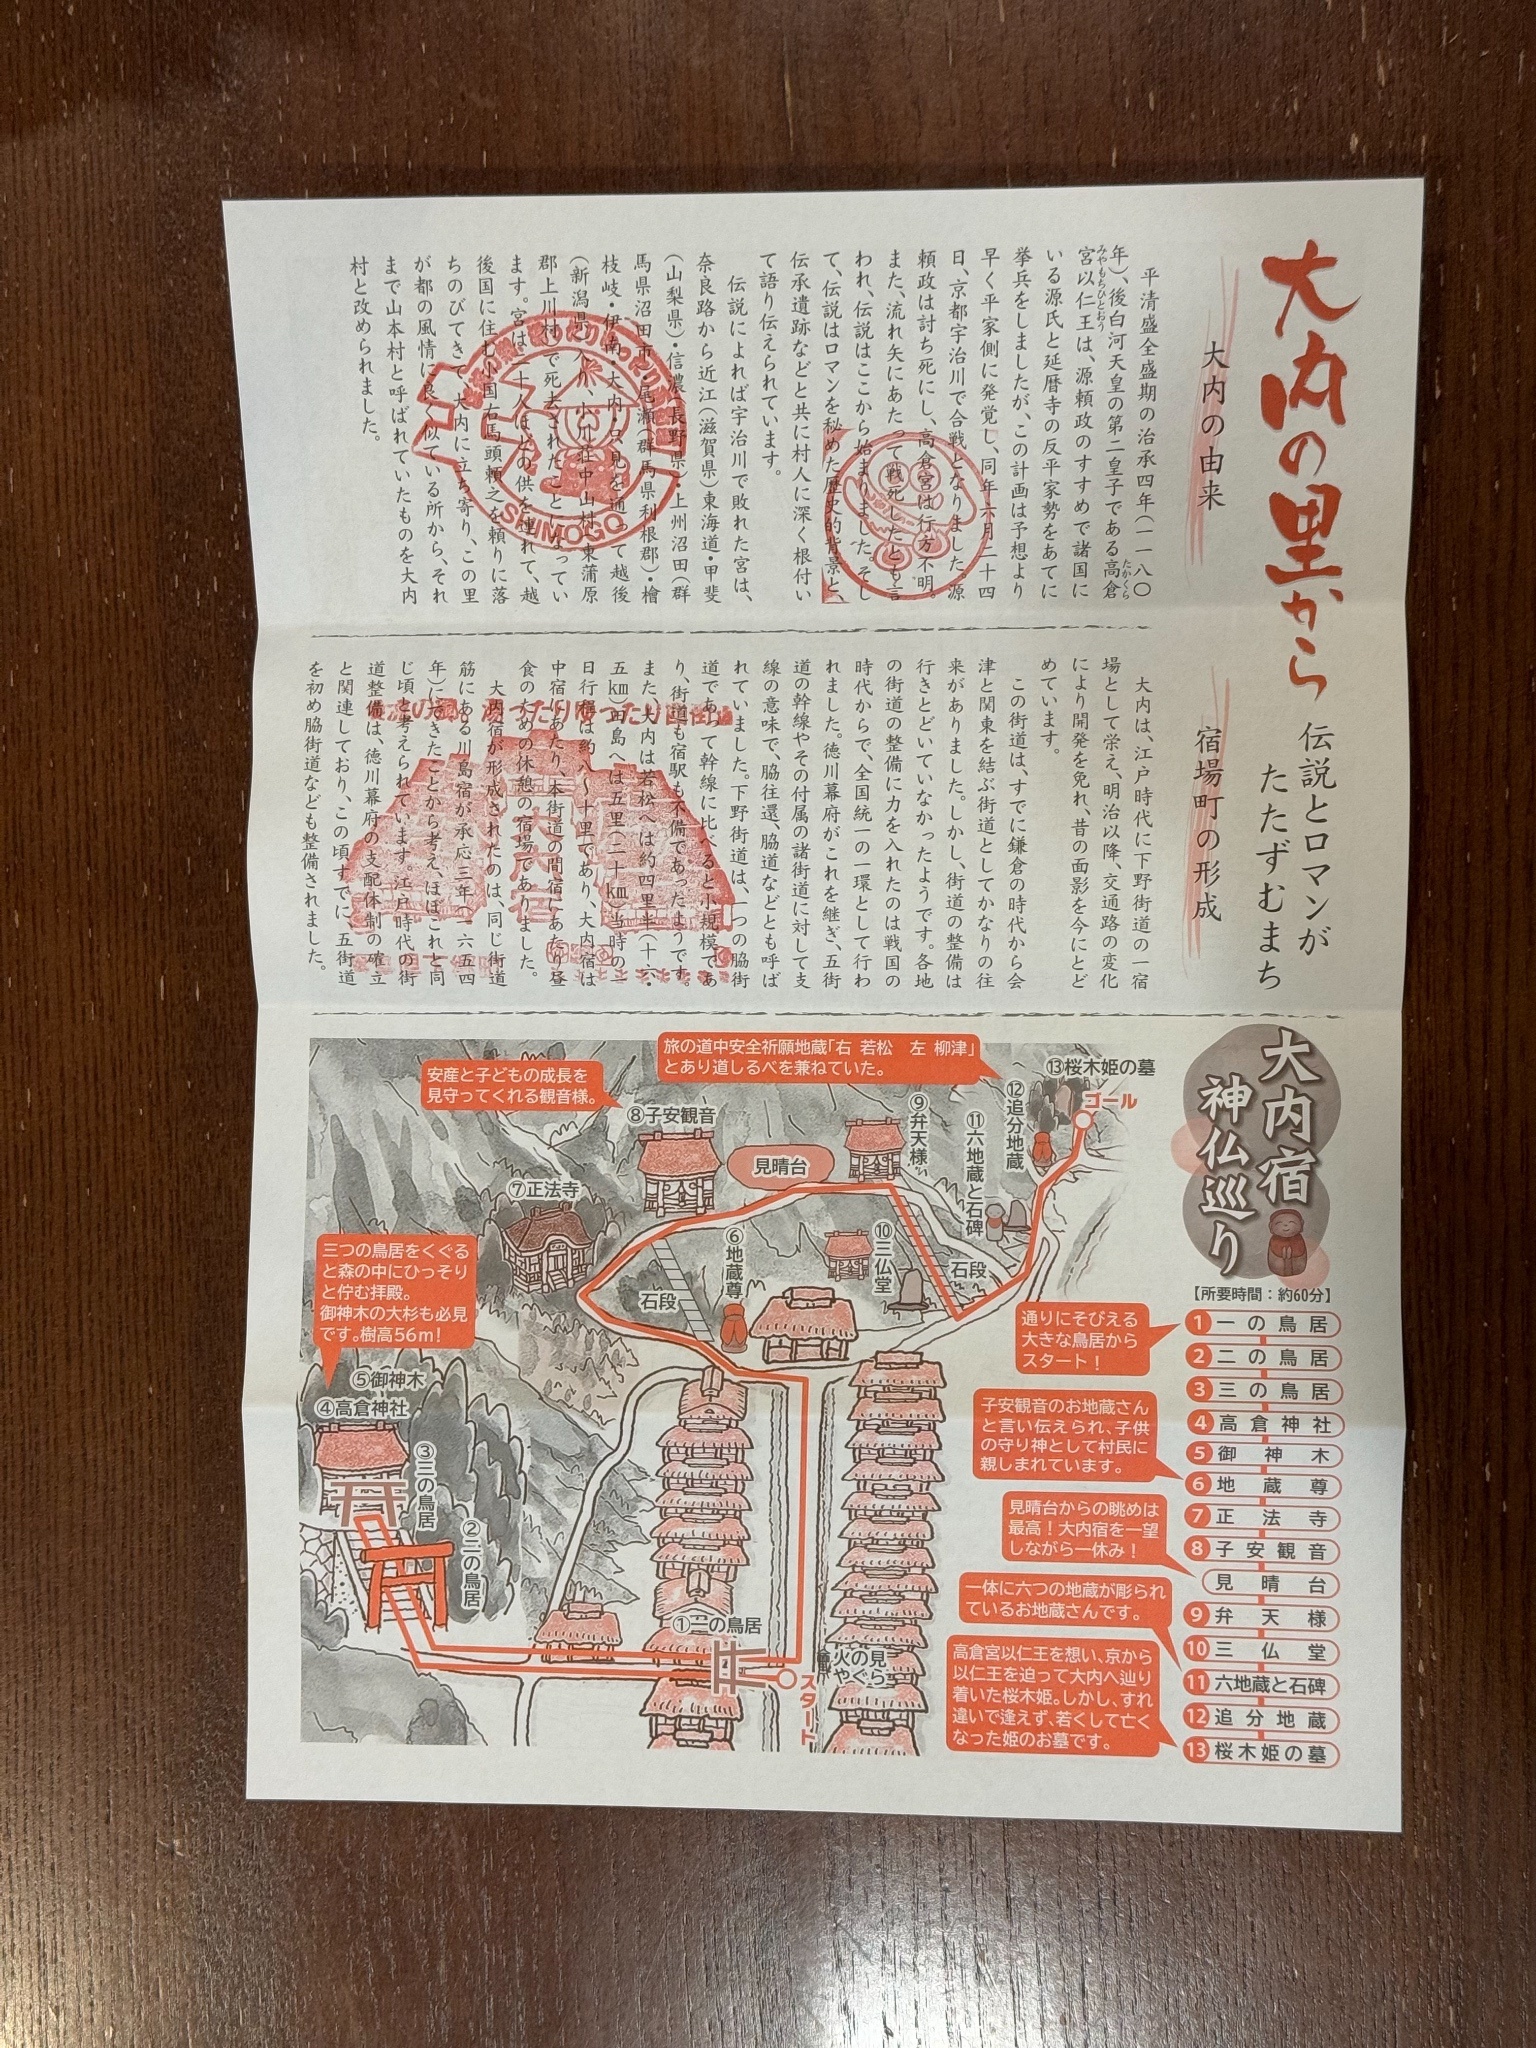 大内の里から
伝説とロマンが
たたずむまち
大内の由来
平清盛全盛期の治承四年(一一八〇
年)、後白河天皇の第二皇子である高倉
宮以仁王は、源頼政のすすめで諸国に
いる源氏と延暦寺の反平家勢をあてに
挙兵をしましたが、この計画は予想より
早く平家側に発覚し、同年六月二十四
日、京都宇治川で合戦となりました。源
頼政は討ち死にし、高倉宮は行方不明。
また、流れ矢にあたって戦死したとも言
われ、伝説はここから始まりました。そし
て、伝説はロマンを秘めた歴史的背景と、
伝承遺跡などと共に村人に深く根付い
て語り伝えられています。
伝説によれば宇治川で敗れた宮は、
奈良路から近江(滋賀県)東海道・甲斐
(山梨県)・信濃(長野県)・上州沼田(群
馬県沼田市・尾瀬(群馬県利根郡)・檜
枝岐・伊南・大内・戸見を通って越後
(新潟県)へ入り、小川荘中山村(東蒲原
郡上川村)で死去されたことになってい
ます。宮は、十人ほどの供を連れて、越
後国に住む小国右馬頭頼之を頼りに落
ちのびてきて、大内に立ち寄り、この里
が都の風情に良く似ている所から、それ
まで山本村と呼ばれていたものを大内
村と改められました。
SHIMOGO
宿場町の形成
大内は、江戸時代に下野街道の一宿
場として栄え、明治以降、交通路の変化
により開発を免れ、昔の面影を今にとど
めています。
この街道は、すでに鎌倉の時代から会
津と関東を結ぶ街道としてかなりの往
来がありました。しかし、街道の整備は
行きとどいていなかったようです。各地
の街道の整備に力を入れたのは戦国の
時代からで、全国統一の一環として行わ
れました。徳川幕府がこれを継ぎ、五街
道の幹線やその付属の諸街道に対して支
線の意味で、脇往還、脇道などとも呼ば
れていました。下野街道は、一つの脇街
道であって幹線に比べると小規模であ
り、街道も宿駅も不備であったようです。
また、大内は若松へは約四里半(十八・
五km)田島へは五里(二十km)当時の一
日行程は約八〜十里であり、大内宿は
中宿にあたり、本街道の間宿にあたり昼
食のための休憩の宿場でありました。
大内宿が形成されたのは、同じ街道
筋にある川島宿が承応三年(一六五四
年)にできたことから考え、ほぼこれと同
じ頃と考えられています。江戸時代の街
道整備は、徳川幕府の支配体制の確立
と関連しており、この頃すでに、五街道
を初め脇街道なども整備されました。
大内宿
大内宿
神仏巡り
【所要時間：約60分】
1 一の鳥居
2 二の鳥居
3 三の鳥居
4 高倉神社
5 御神木
6 地蔵尊
7 正法寺
8 子安観音
見晴台
9 弁天様
10 三仏堂
11 六地蔵と石碑
12 追分地蔵
13 桜木姫の墓
通りにそびえる
大きな鳥居から
スタート！
子安観音のお地蔵さん
と言い伝えられ、子供
の守り神として村民に
親しまれています。
見晴台からの眺めは
最高！大内宿を一望
しながら一休み！
一体に六つの地蔵が彫られ
ているお地蔵さんです。
高倉宮以仁王を想い、京から
以仁王を追って大内へ辿り
着いた桜木姫。しかし、すれ
違いで逢えず、若くして亡く
なった姫のお墓です。
旅の道中安全祈願地蔵「右 若松 左 柳津」
とあり道しるべを兼ねていた。
安産と子どもの成長を
見守ってくれる観音様。
三つの鳥居をくぐる
と森の中にひっそり
と佇む拝殿。
御神木の大杉も必見
です。樹高56m！
⑬桜木姫の墓
ゴール
⑫追分地蔵
⑪六地蔵と石碑
⑨弁天様
⑧子安観音
見晴台
⑦正法寺
⑥地蔵尊
⑩三仏堂
石段
石段
⑤御神木
④高倉神社
③三の鳥居
②二の鳥居
①一の鳥居
火の見
やぐら
スタート